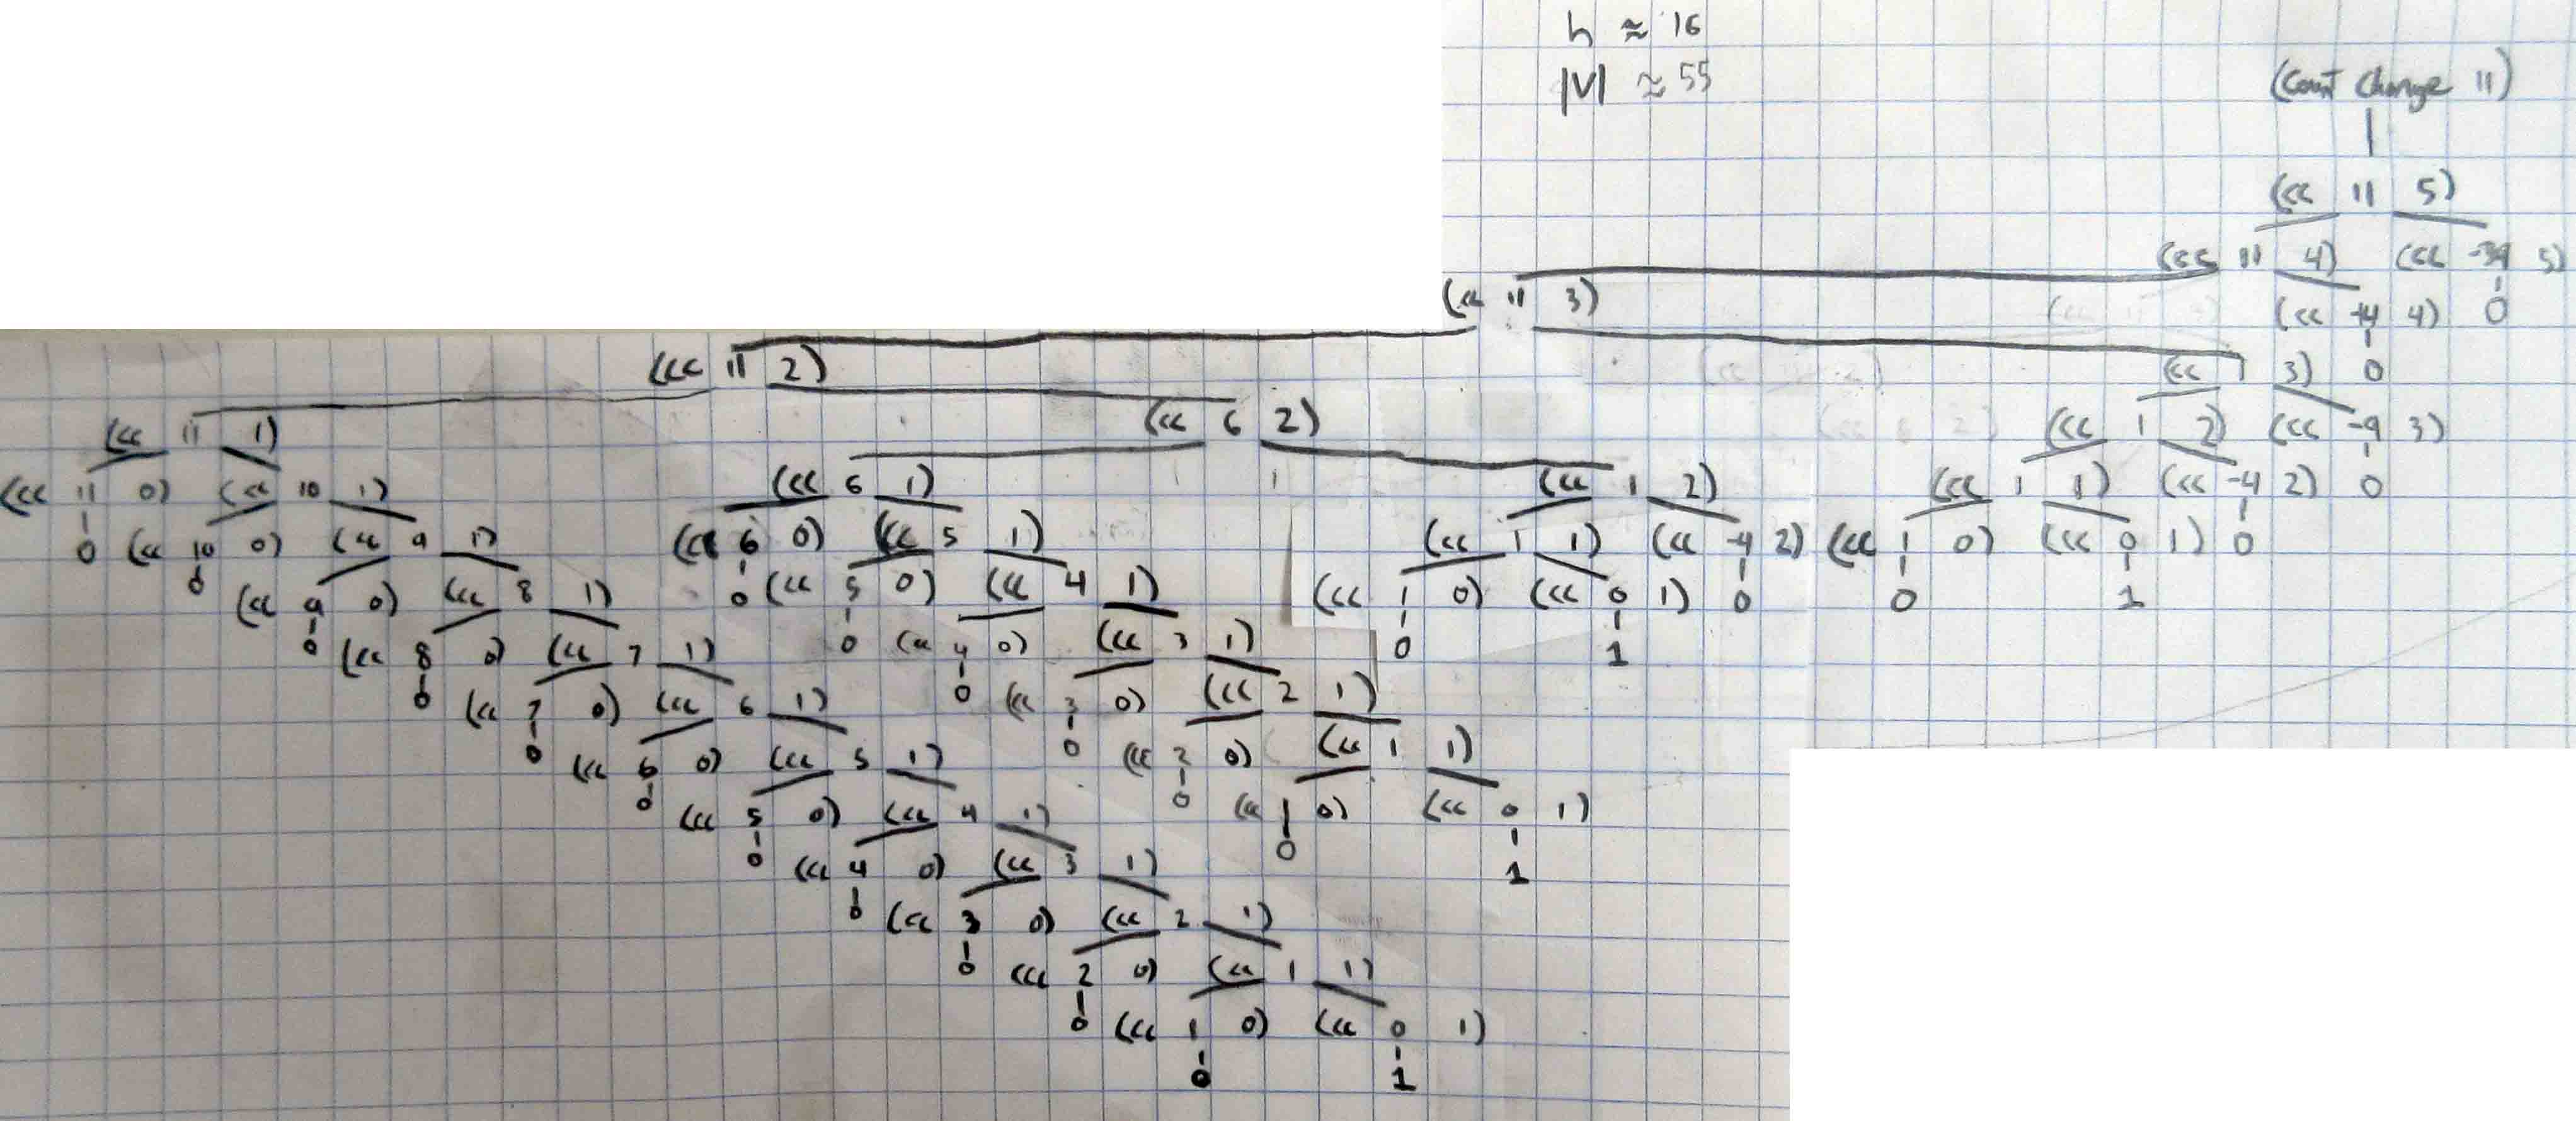 h ≈ 16
|V| ≈ 55
(Count Change 11)
(cc 11 5)
(cc 11 4) (cc -39 5)
(cc 11 3) (cc -14 4) 0
(cc 11 2) (cc 1 3) 0
(cc 11 1) (cc 6 2) (cc 1 2) (cc -9 3)
(cc 11 0) (cc 10 1) (cc 6 1) (cc 1 2) (cc 1 1) (cc -4 2) 0
0 (cc 10 0) (cc 9 1) (cc 6 0) (cc 5 1) (cc 1 1) (cc -4 2) (cc 1 0) (cc 0 1) 0
0 (cc 9 0) (cc 8 1) 0 (cc 5 0) (cc 4 1) (cc 1 0) (cc 0 1) 0 0 1
0 (cc 8 0) (cc 7 1) 0 (cc 4 0) (cc 3 1) 0 1
0 (cc 7 0) (cc 6 1) 0 (cc 3 0) (cc 2 1)
0 (cc 6 0) (cc 5 1) 0 (cc 2 0) (cc 1 1)
0 (cc 5 0) (cc 4 1) 0 (cc 1 0) (cc 0 1)
0 (cc 4 0) (cc 3 1) 0 1
0 (cc 3 0) (cc 2 1)
0 (cc 2 0) (cc 1 1)
0 (cc 1 0) (cc 0 1)
0 1